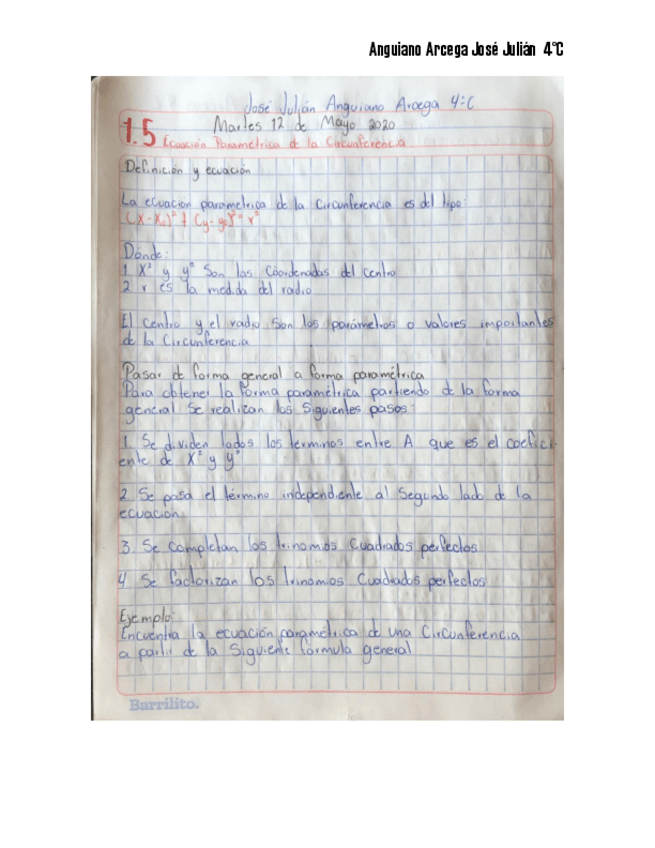 Anguiano Arcega José Julián 4°C
José Julián Anguiano Arcega 4°C
Martes 12 de Mayo 2020
1.5 Ecuación Parametrica de la Circunferencia
Definición y ecuación
La ecuación parametrica de la Circunferencia es del tipo:
(X-X₀)² + (y-y₀)² = r²
Dónde:
1. X² y y² Son las Coordenadas del centro
2. r es la medida del radio
El Centro y el radio Son los parámetros o valores importantes
de la Circunferencia
Pasar de forma general a forma paramétrica
Para obtener la forma paramétrica partiendo de la forma
general Se realizan los Siguientes pasos:
1. Se dividen todos los términos entre A que es el coefici-
ente de X² y y²
2. Se pasa el término independiente al Segundo lado de la
ecuación.
3. Se Completan los trinomios Cuadrados perfectos
4. Se factorizan los trinomios Cuadrados perfectos
Ejemplo:
Encuentra la ecuación paramétrica de una Circunferencia
a partir de la Siguiente fórmula general
Barrilito.